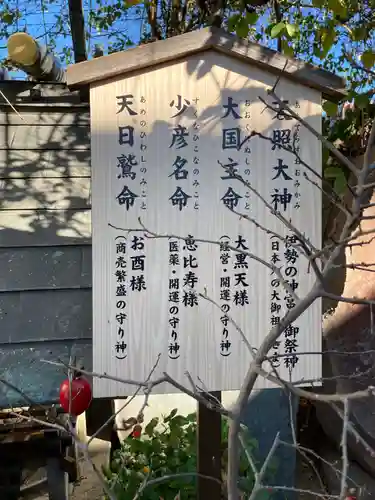 天照大神
おおみかみ
伊勢の神宮
御祭神
(日本人の大御祖
大国主命
おおくにぬしのみこと
大黒天様
(経営・開運の守り神)
少彦名命
すくなひこなのみこと
恵比寿様
(医薬・開運の守り神)
天日鷲命
あめのひわしのみこと
お酉様
(商売繁盛の守り神)